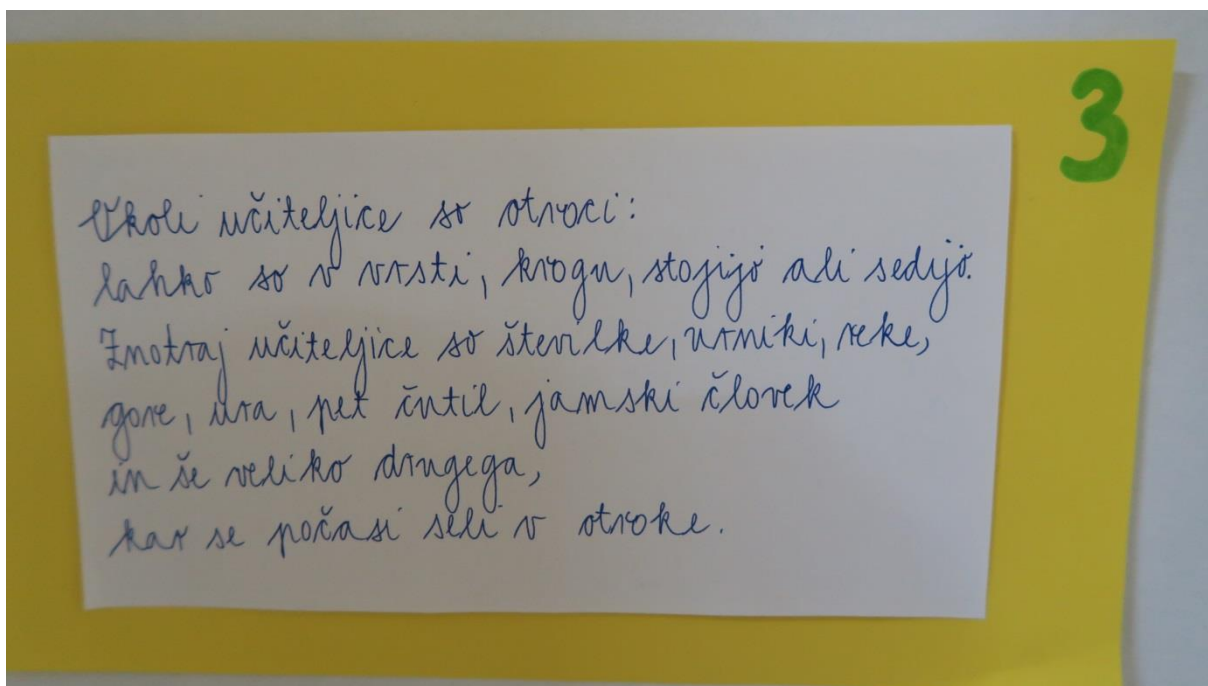 3
Okoli učiteljice so otroci:
lahko so v vrsti, krogu, stojijo ali sedijo.
Znotraj učiteljice so številke, urniki, reke,
gore, ura, pet čutil, jamski človek
in še veliko drugega,
kar se počasi seli v otroke.